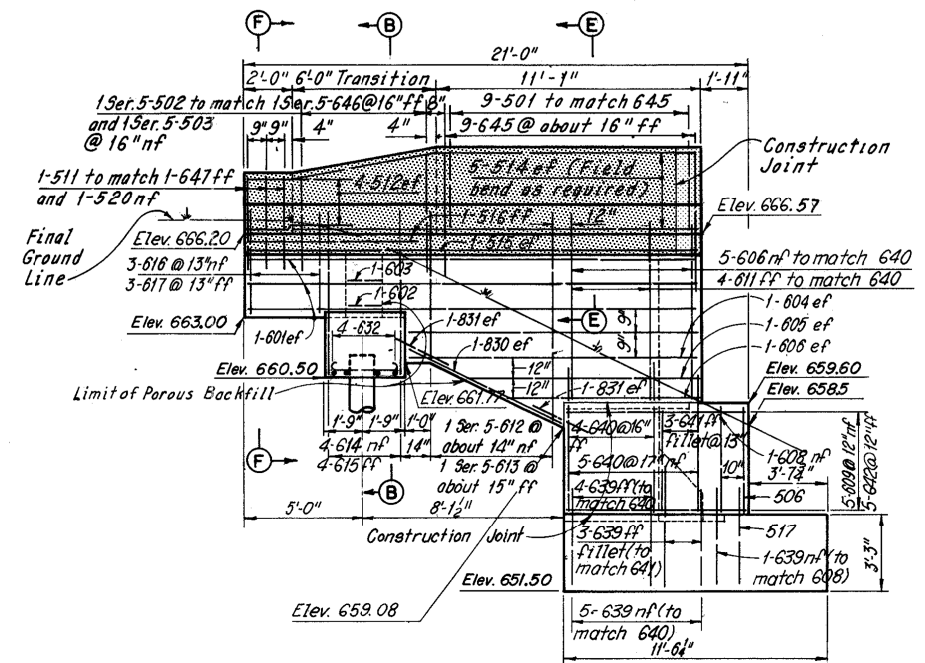 F
B
E
21'-0"
2'-0" 6'-0" Transition
11'-1"
1'-11"
1 Ser. 5-502 to match 1 Ser. 5-646@16"ff 8"
and 1 Ser. 5-503
@ 16" nf
9-501 to match 645
9-645 @ about 16" ff
9" 9"
4"
4"
Construction
Joint
1-511 to match 1-647ff
and 1-520nf
4-512ef
5-514ef (Field
bend as required)
1-516ff
12"
1-515 ef
Elev. 666.57
Final
Ground
Line
Elev. 666.20
3-616 @ 13"nf
3-617 @ 13"ff
1-603
1-602
5-606 nf to match 640
4-611 ff to match 640
Elev. 663.00
1-601ef
4-632
1-831ef
1-830ef
E
9" 9"
1-604 ef
1-605 ef
1-606 ef
Elev. 660.50
Limit of Porous Backfill
Elev. 661.77
12"
12"
1-831ef
Elev. 659.60
Elev. 658.5
1'-9" 1'-9" 1'-0"
4-614 nf
4-615 ff
14"
1 Ser. 5-612 @
about 14" nf
1 Ser. 5-613 @
about 15" ff
4-640@16"
ff
3-641ff
fillet@13"
1-608 nf
3'-7¾"
5-640@17"nf
10"
5-609@12"nf
5-642@12"ff
4-639ff(to
match 640)
506
F
B
5'-0"
8'-1½"
Construction Joint
517
3-639ff
fillet(to
match 641)
1-639nf(to
match 608)
3'-3"
Elev. 651.50
Elev. 659.08
5-639nf(to
match 640)
11'-6¼"